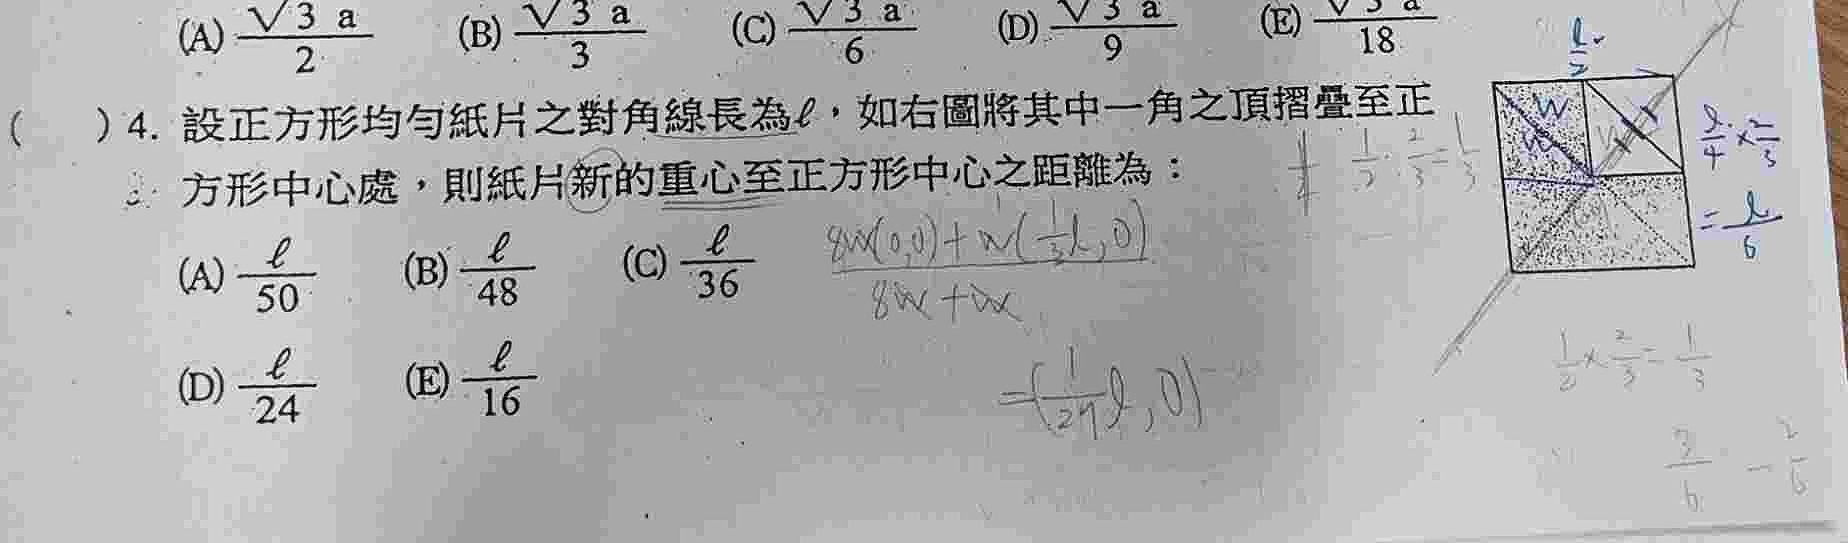 (A) √3 a / 2 (B) √3 a / 3 (C) √3 a / 6 (D) √3 a / 9 (E) √3 a / 18
( ) 4. 設正方形均勻紙片之對角線長為ℓ，如右圖將其中一角之頂摺疊至正
方形中心處，則紙片新的重心至正方形中心之距離為：
(A) ℓ/50 (B) ℓ/48 (C) ℓ/36
(D) ℓ/24 (E) ℓ/16
8W(0,0)+W(1/3 ℓ,0) / 8W+W
=(1/27 ℓ,0)
1/2 · 2/3 = 1/3
ℓ/2
W
W
ℓ/4 × 2/3
= ℓ/6
1/2 × 2/3 = 1/3
3/6 - 2/6